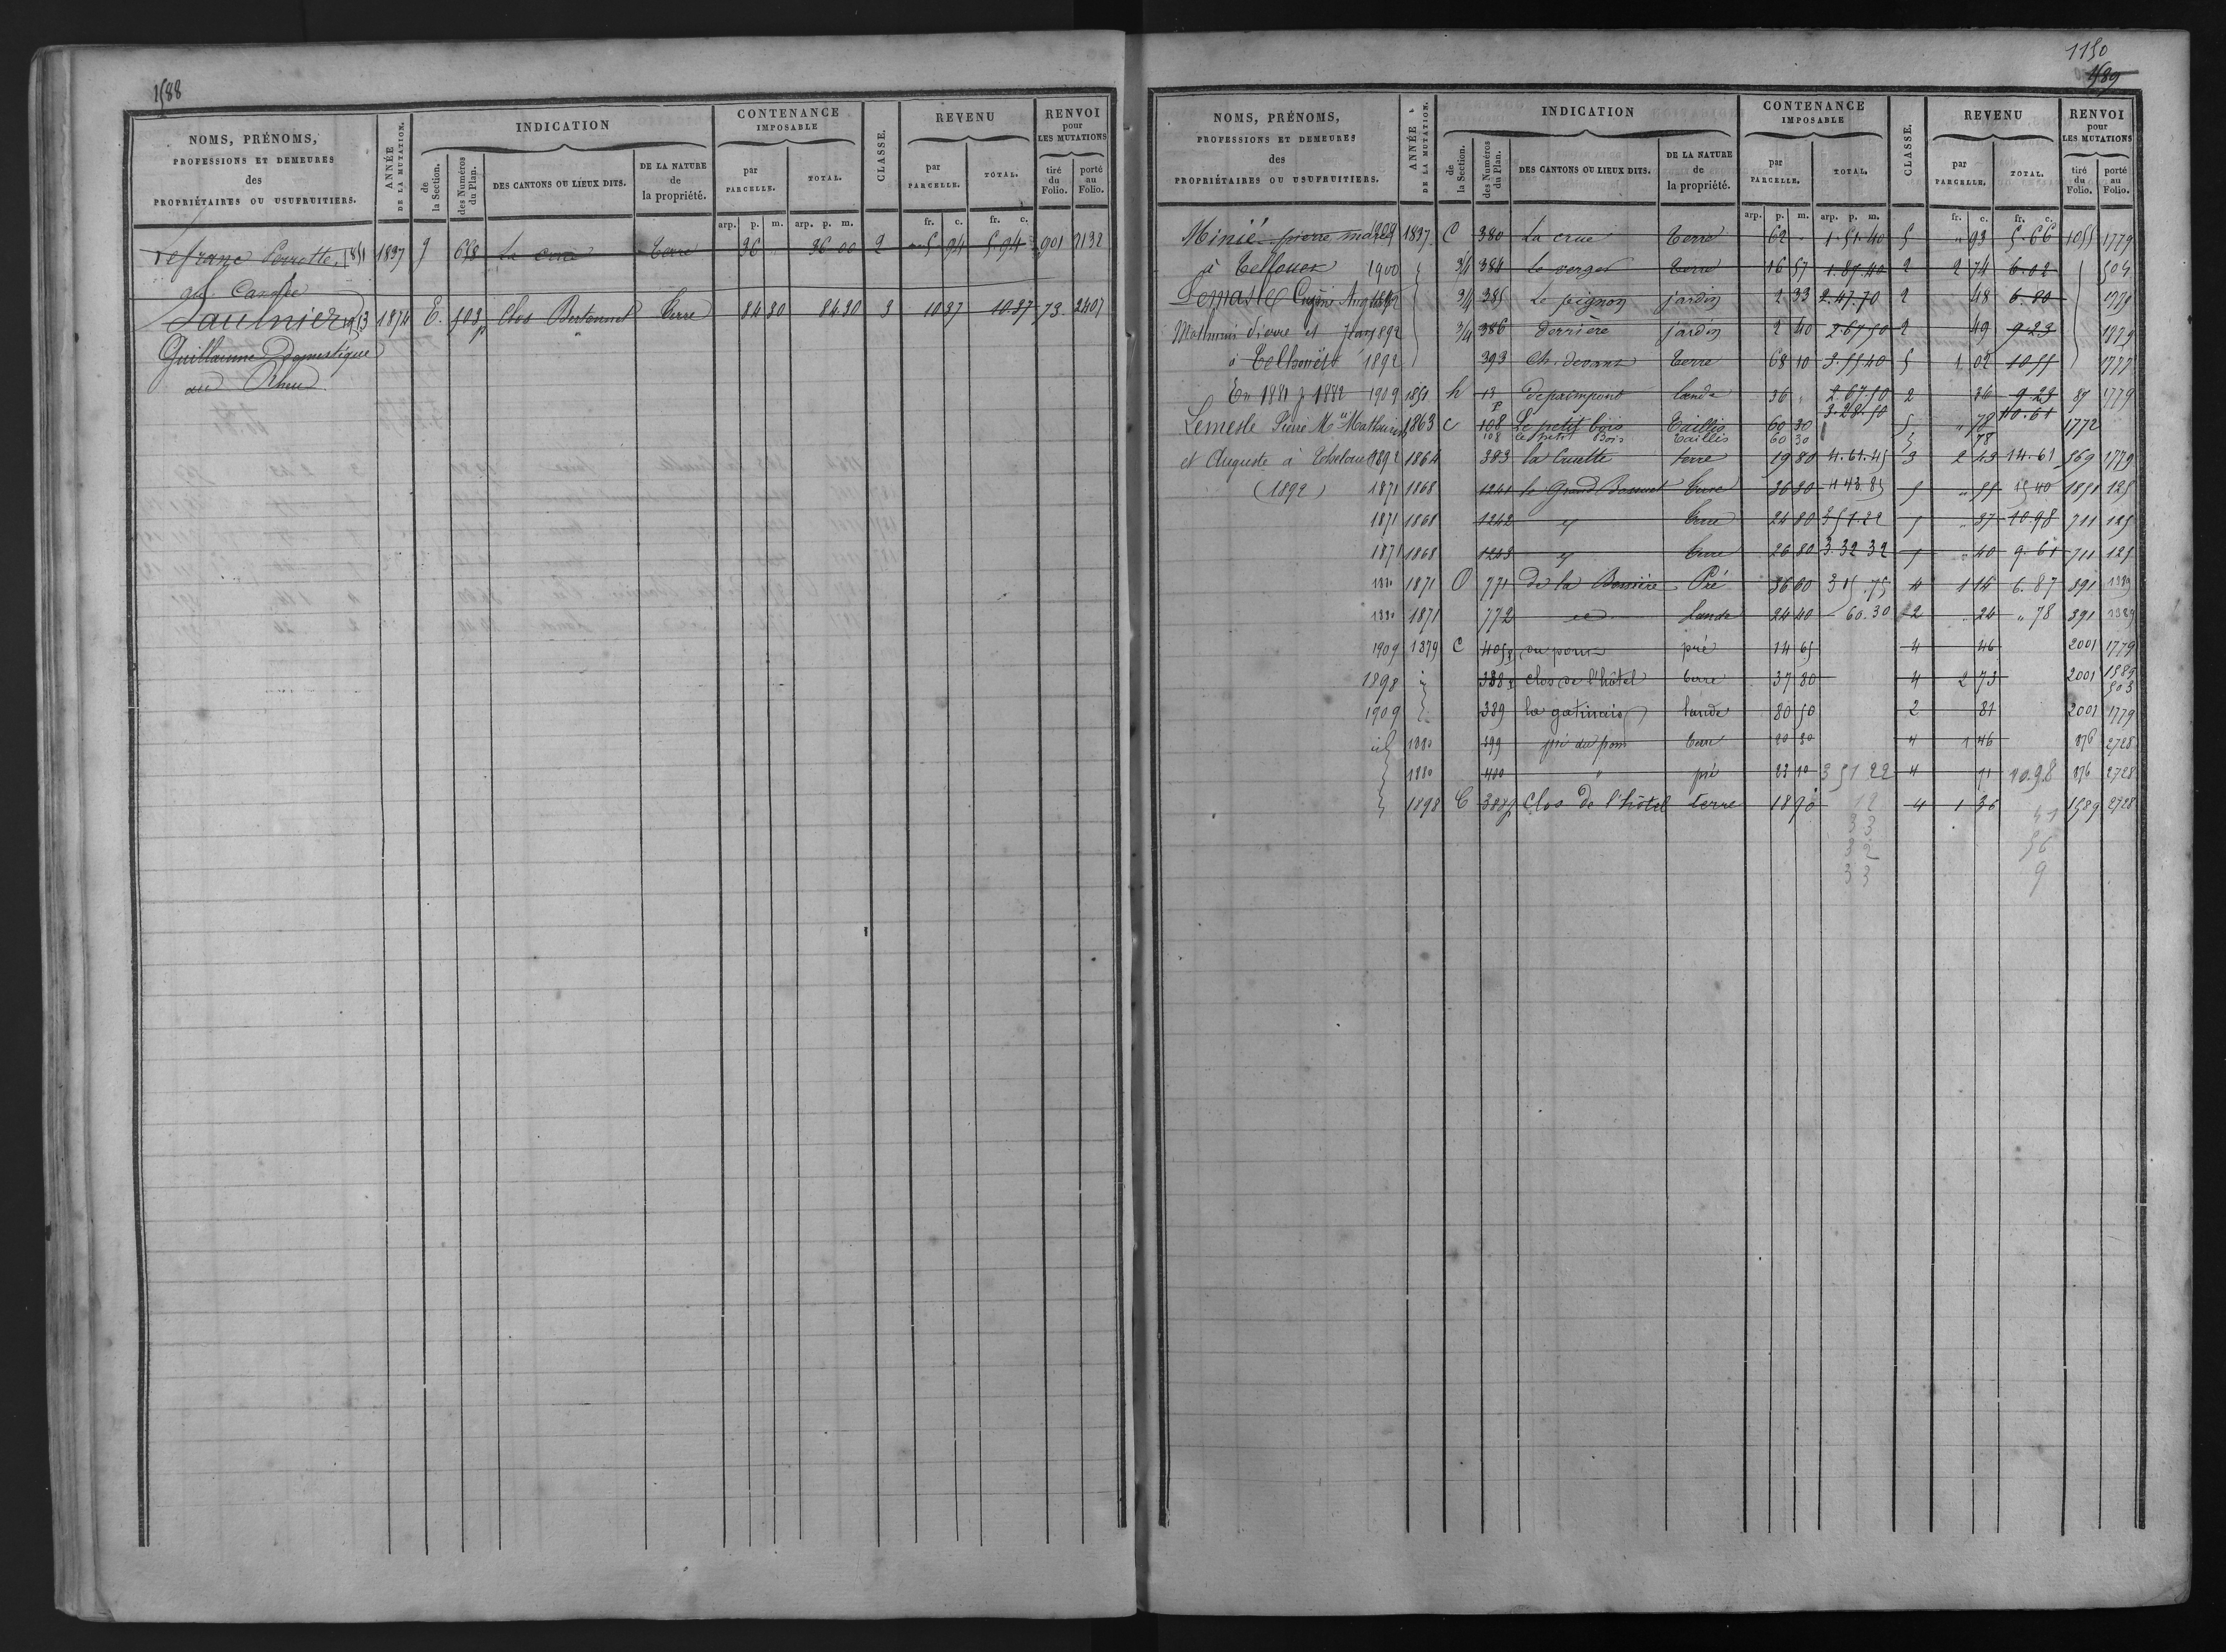 1588
NOMS, PRÉNOMS, PROFESSIONS ET DEMEURES des PROPRIÉTAIRES OU USUFRUITIERS.
ANNÉE DE LA MUTATION.
INDICATION
de la Section.
des Numéros du Plan.
DES CANTONS OU LIEUX DITS.
DE LA NATURE de la propriété.
CONTENANCE IMPOSABLE
par PARCELLE.
TOTAL.
CLASSE.
REVENU
par PARCELLE.
TOTAL.
RENVOI pour LES MUTATIONS
tiré du Folio.
porté au Folio.
arp. p. m. arp. p. m. fr. c. fr. c.
Lefranc Perrotte 1851 1837 g 658 La crue terre 36 " 36 00 2 5 94 5 94 901 2132
Saulnier 1874 E. 503 p Clos Bertonnet terre 84 30 84.30 3 10 37 10.37 73 2407
Guillaume Domestique
au Rheu
1150
1589
NOMS, PRÉNOMS, PROFESSIONS ET DEMEURES des PROPRIÉTAIRES OU USUFRUITIERS.
ANNÉE DE LA MUTATION.
INDICATION
de la Section.
des Numéros du Plan.
DES CANTONS OU LIEUX DITS.
DE LA NATURE de la propriété.
CONTENANCE IMPOSABLE
par PARCELLE.
TOTAL.
CLASSE.
REVENU
par PARCELLE.
TOTAL.
RENVOI pour LES MUTATIONS
tiré du Folio.
porté au Folio.
arp. p. m. arp. p. m. fr. c. fr. c.
Minié pierre 1909 1837 C 380 La crue terre 62 1.51.40 5 " 93 5.66 1055 1779
à Telhouet 1900 3/4 384 Le verger terre 16 57 1.87.40 2 2 74 6.02 504
Lemasle Eugène 3/4 385 Le pignon jardin 2 33 2.47.70 2 48 6.80
Mathurin 1892 3/4 386 derrière jardin 2 40 2.67.50 2 49 9.23 1779
à Telhouët 1892 393 Ch. devant terre 68 10 3.55.40 5 1 02 10 55 1777
En 1881 1882 1909 1851 h 13 p lande 36 " 2.67.50 2 36 9.23 87 1779
3.28.50 10.61
Lemesle Pierre Mie Mathurin 1863 C 108 Le petit bois Taillis 60 30 5 " 78 1772
108 le petit Bois taillis 60 30 5 78
et Auguste à Telhouet 1892 1864 383 la Cruette terre 19 80 4.61.45 3 2 43 14.61 569 1779
(1892) 1871 1868 1241 le Grand terre 36 30 4 43.85 5 " 55 15 40 1851 125
1871 1868 1242 id terre 24 80 3 51.22 5 " 37 10.98 711 125
1871 1868 1243 id terre 26 80 3.32 32 5 " 40 9.61 711 125
1880 1871 O 771 de la Bessière Pré 36 60 3 15.75 4 1 14 6.87 391 1389
1880 1871 772 id lande 24 40 60.30 2 " 24 " 78 391 1389
1909 1879 C pré 14 65 4 46 2001 1779
1898 388 clos de l'hôtel terre 37 80 4 2 73 2001 1589 503
1909 389 la gatinais lande 80 50 2 81 2001 1779
id 1880 399 terre 20 30 4 1 46 876 2728
1880 400 " pré 23 10 3 51 22 4 71 10.98 876 2728
1898 C 388 p Clos de l'hôtel terre 18 90 12 4 1 36 1589 2728
33 41
32 56
33 9